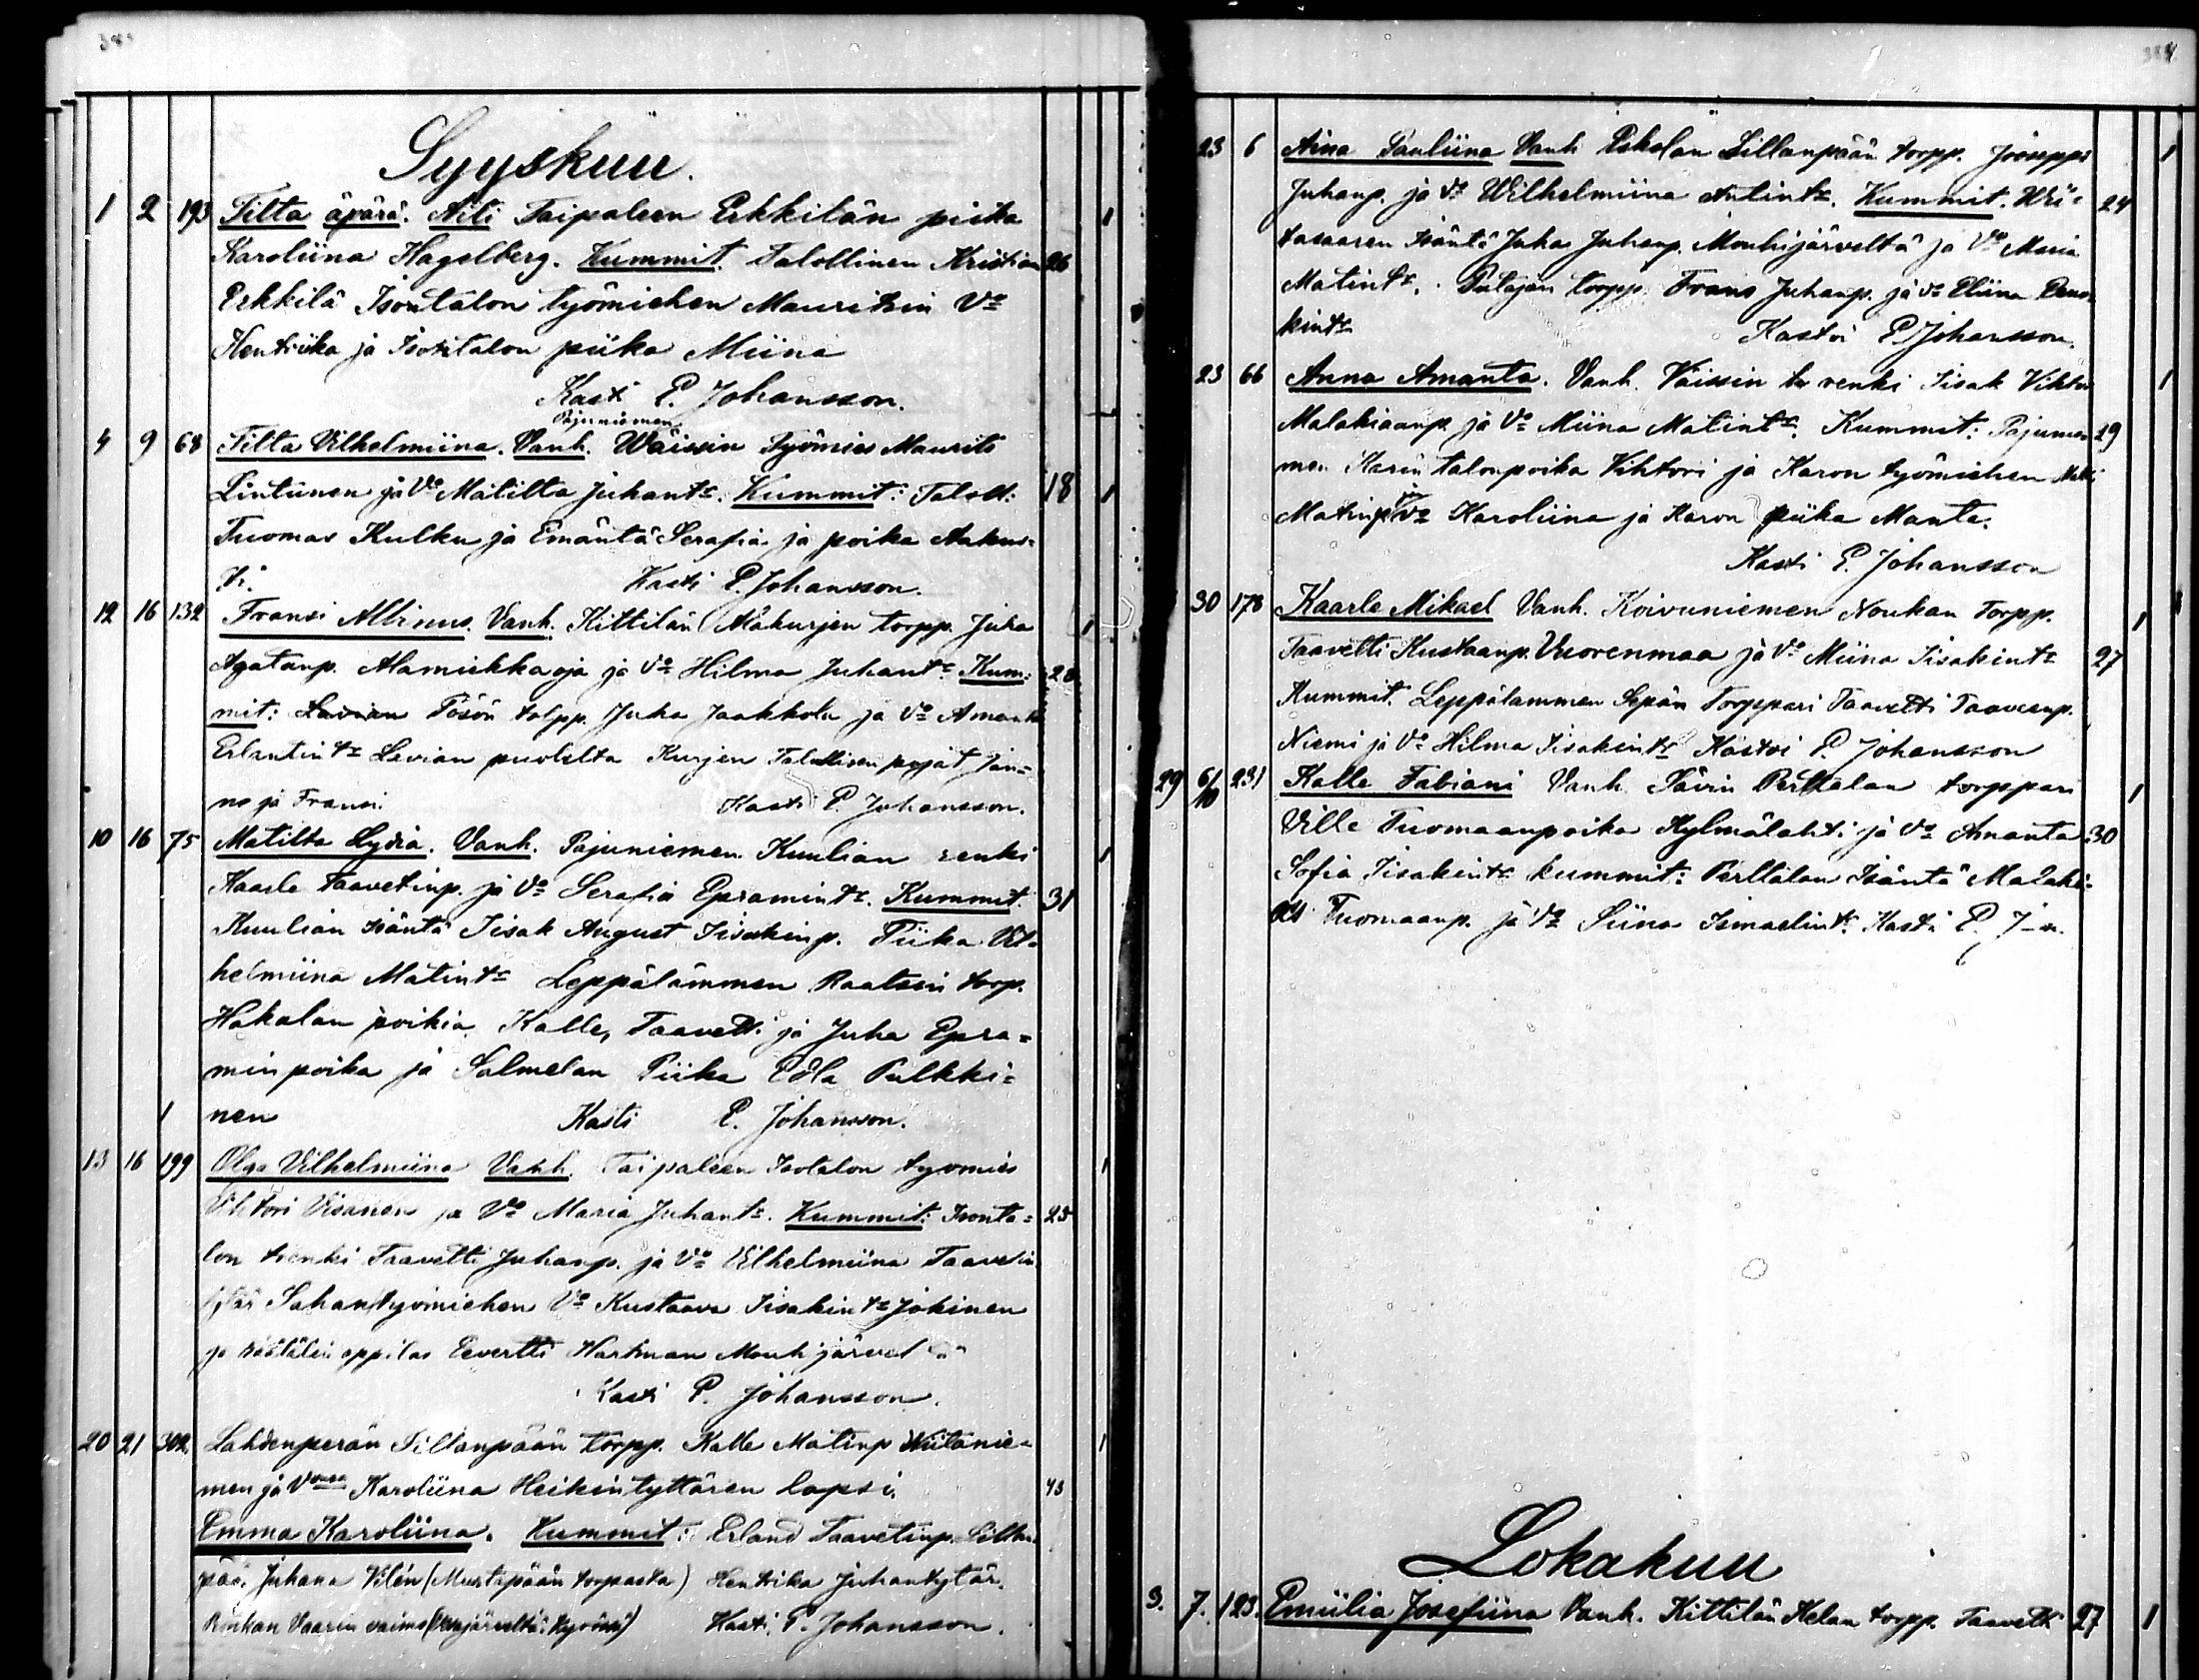 Syyskuu.
1 2 193 Tilta äpärä. Äiti Taipaleen Erkkilän piika
Karoliina Hagelberg. Kummit. Talollinen Kristian 26
Erkkilä Isontalon työmiehen Mauritsin Vo
Hentriika ja Isontalon piika Miina
Kasti P. Johansson.
Pajuniemen
4 9 68 Tilta Vilhelmiina. Vanh. Wäissin Työmies Maurits
Lintunen ja Vo Matilta Juhantr. Kummit: Taloll: 18
Tuomas Kulku ja Emäntä Serafia ja poika Aukus-
ti. Kasti P. Johansson.
12 16 132 Fransi Albinus. Vanh. Kittilän Mäkurjen torpp. Juha
Agatanp. Alamiekkaoja ja Vo Hilma Juhantr. Kum- 28
mit: Lavian Pösön torpp. Juha Jaakkola ja Vo Amanta
Erlantintr Lavian puolelta Kurjen Talollisen pojat Jan-
ne ja Fransi. Kasti P. Johansson.
10 16 75 Matilta Lydia. Vanh. Pajuniemen Kuulian renki
Kaarle Taavetinp. ja Vo Serafia Epramintr. Kummit. 31
Kuulian isäntä Iisak August Iisakinp. Piika Vil-
helmiina Matintr Leppälammen Raatsin torp.
Hakalan poikia Kalle, Taavetti ja Juha Epra-
minpoika ja Salmelan Piika Edla Pulkki-
nen Kasti P. Johansson.
13 16 199 Olga Vilhelmiina Vanh. Taipaleen Isotalon työmies
Vihtori Visanen ja Vo Maria Juhantr. Kummit: Isonta- 25
lon renki Taavetti Juhanp. ja Vo Vilhelmiina Taavetin
tytär Sahantyömiehen Vo Kustaava Iisakintr Jokinen
ja räätälin oppilas Eevertti Hartman Mouhijärvel
Kasti P. Johansson.
20 21 302 Lahdenperän Sillanpään torpp. Kalle Matinp Wiitanie-
men ja Vmon Karoliina Heikintyttären lapsi. 43
Emma Karoliina. Kummit: Erland Taavetinp. Sillan
pää, Juhana Vilén (Mustapään torpasta) Hentrika Juhantytär.
Vaarin vaimo Kasti. P. Johansson.
23 6 Aina Pauliina Vanh Sillanpään torpp. Joosepp
Juhanp. ja Vo Wilhelmiina Antintr. Kummit. Wii- 24
tasaaren Isäntä Juha Juhanp. Mouhijärveltä ja Vo Maria
Matintr. Putajan torpp. Frans Juhanp. ja Vo Eliina
kintr Kastoi P. Johansson.
23 66 Anna Amanta. Vanh. Väissin renki Iisak Vihtor
Malakiaanp. ja Vo Miina Matintr. Kummit: Pajunie- 29
men Karin talonpoika Vihtori ja Karon työmiehen Matti
Matinp ja Vo Karoliina ja Karon piika Manta.
Kasti P. Johansson
30 178 Kaarle Mikael Vanh. Koivuniemen Noukan Torpp.
Taavetti Kustaanp. Vuorenmaa ja Vo Miina Iisakintr 27
Kummit. Leppälammen Sepän Torppari Taavetti Taaveanp.
Niemi ja Vo Hilma Iisakintr Kastoi P. Johansson
29 6/10 231 Kalle Fabiani Vanh. Sävin Perttalan torppari
Ville Tuomaanpoika Kylmälahti ja Vo Amanta 30
Sofia Iisakintr kummit: Perttalan Isäntä Malaki-
as Tuomaanp. ja Vo Siina Ismaelintr. Kasti P. J-n.
Lokakuu
3. 7. 123. Emiilia Josefiina Vanh. Kittilän Kelan torpp. Taavetti 27